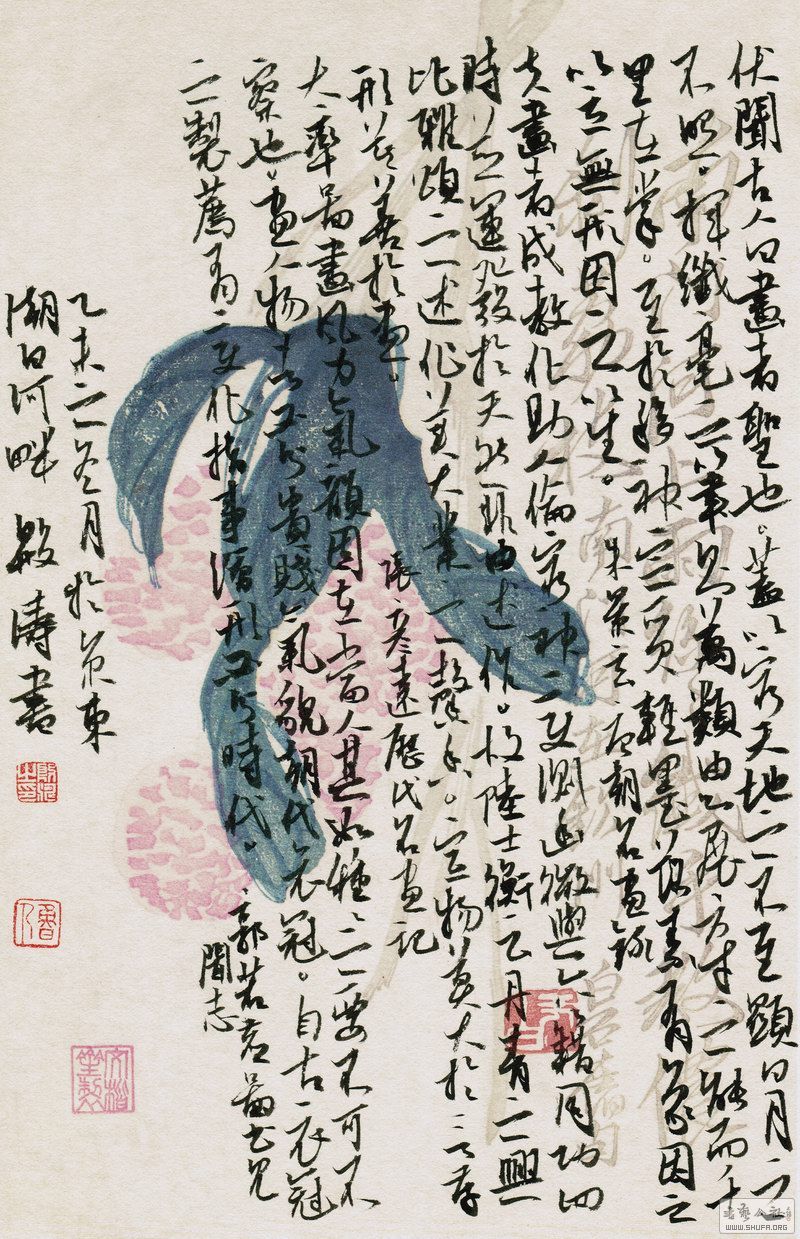 伏聞古人曰畫者聖也。蓋以窮天地之不至顯日月之
不照。揮纖毫之筆則萬類由心展方寸之能而千
里在掌。至於移神定質輕墨落素有象因之
以立無形因之以生。
朱景玄唐朝名畫錄
夫畫者成教化助人倫窮神變測幽微與六籍同功四
時並運發於天然非由述作。故陸士衡云丹青之興
比雅頌之述作美大業之馨香。宣物莫大於言存
形莫善於畫。
張彥遠歷代名畫記
大率圖畫風力氣韻固在當人其如種種之要不可不
察也。畫人物者必分貴賤氣貌朝代衣冠。自古衣冠
之製薦有變化指事繪形必分時代。
郭若虛圖畫見
聞志
乙未之冬月於京東
潮白河畔 殷濤書
WWW.SHUFA.ORG